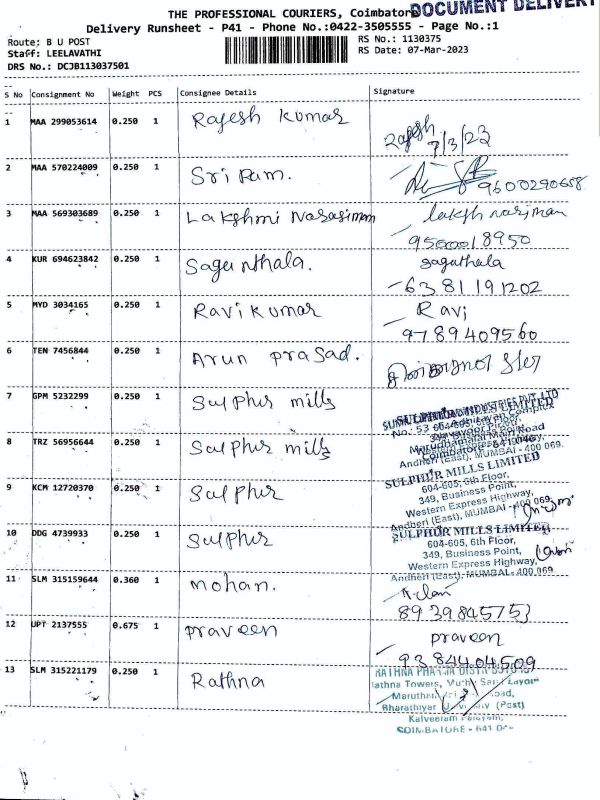 DOCUMENT DELIVERY
THE PROFESSIONAL COURIERS, Coimbatore
Delivery Runsheet - P41 - Phone No.:0422-3505555 - Page No.:1
Route: B U POST
Staff: LEELAVATHI
DRS No.: DCJB113037501
RS No.: 1130375
RS Date: 07-Mar-2023
S No Consignment No Weight PCS Consignee Details Signature
1 MAA 299053614 0.250 1 Rajesh Kumar Rajesh 7/3/23
2 MAA 570224009 0.250 1 Sri Ram. 9600290658
3 MAA 569303689 0.250 1 Lakshmi Narasimm laksh nariman
9500018950
4 KUR 694623842 0.250 1 Sagunthala. Saguthala
6381191202
5 MYD 3034165 0.250 1 Ravi kumar Ravi
9789409560
6 TEN 7456844 0.250 1 Arun prasad.
7 GPM 5232299 0.250 1 Sulphur mills
8 TRZ 56956644 0.250 1 Sulphur mills
Andheri (East), MUMBAI - 400 069.
9 KCM 12720370 0.250 1 Sulphur SULPHUR MILLS LIMITED
604-605, 6th Floor,
349, Business Point,
Western Express Highway,
Andheri (East), MUMBAI - 400 069.
10 DDG 4739933 0.250 1 Sulphur SULPHUR MILLS LIMITED
604-605, 6th Floor,
349, Business Point,
Western Express Highway,
Andheri (East), MUMBAI - 400 069.
11 SLM 315159644 0.360 1 Mohan.
8939847573
12 UPT 2137555 0.675 1 Praveen praveen
9384404509
13 SLM 315221179 0.250 1 Rathna RATHNA PHARMA
Rathna Towers,
Bharathiyar (Post)
Kalveeram Palayam,
COIMBATORE - 641